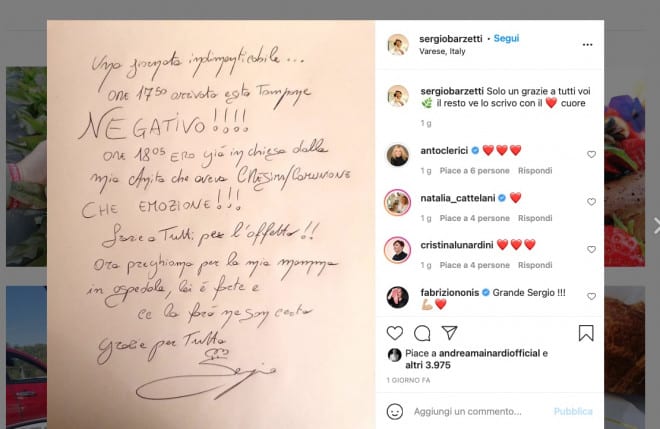 Una giornata indimenticabile...
ORE 1750 arrivato esito Tampone
NEGATIVO!!!!
ORE 1805 ERO già in chiesa dalla
mia Anita che aveva CRESIMA/COMUNIONE
CHE EMOZIONE!!!
Grazie a Tutti per l'affetto!!
Ora preghiamo per la mia mamma
in ospedale, lei è forte e
ce la farà ne son certo
Grazie per Tutto
Sergio
sergiobarzetti • Segui
Varese, Italy
sergiobarzetti Solo un grazie a tutti voi
🌿 il resto ve lo scrivo con il ❤️ cuore
1 g
antoclerici ❤️❤️❤️
1 g Piace a 6 persone Rispondi
natalia_cattelani ❤️
1 g Piace a 4 persone Rispondi
cristinalunardini ❤️❤️❤️
1 g Piace a 4 persone Rispondi
fabrizionoris Grande Sergio !!!
💪🏼❤️
Piace a andreamainardiofficial e
altri 3.975
1 GIORNO FA
Aggiungi un commento... Pubblica